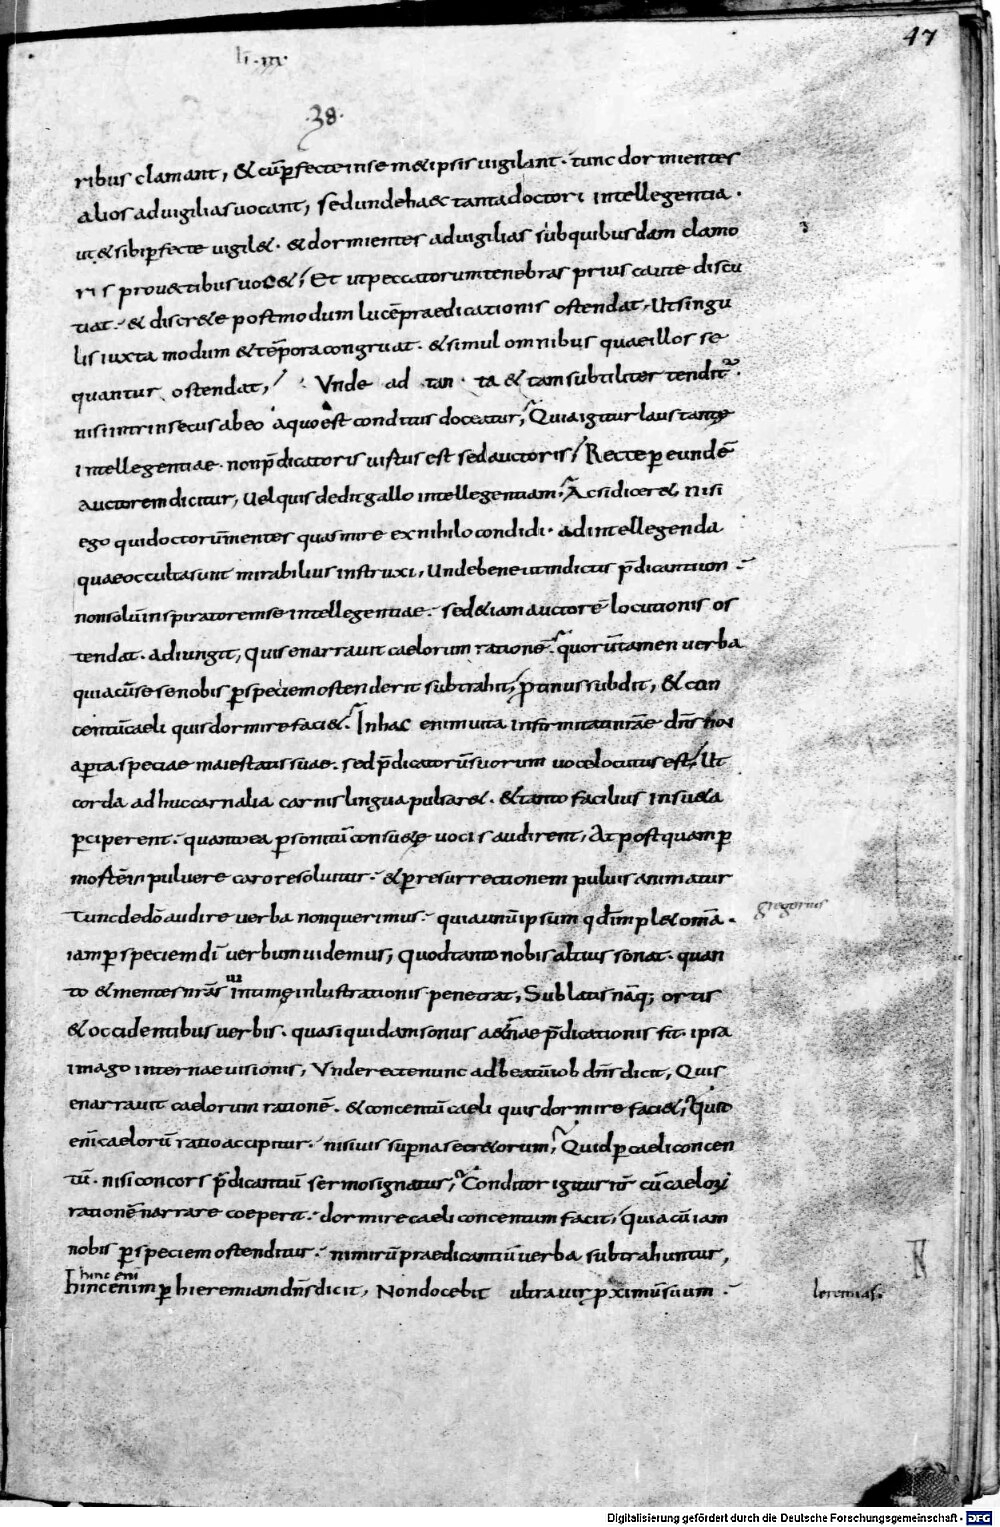 47
li·III·
·38·
ribus clamant, & cū pfecte insem&ipsis vigilant· tunc dormientes
alios ad vigilias vocant, sed unde haec tanta doctori intellegentia·
ut & sibi pfecte vigil&· & dormientes ad vigilias sub quibusdam clamo
ris prouectibus uoc&; Et ut peccatorum tenebras prius caute discu
tiat· & discr&e postmodum lucē praedicationis ostendat, Ut singu
lis iuxta modum & tēpora congruat· & simul omnibus quae illos se
quantur ostendat, Vnde ad tanta & tam subtiliter tenditur·
nisi intrinsecus ab eo a quo est conditus doceatur; Quia igitur laus tantę
intellegentiae· non p̄dicatoris uirtus est sed auctoris; Recte p eundē
auctorem dicitur, Uel quis dedit gallo intellegentiam; Ac si dicer&, nisi
ego qui doctorum mentes quas mire ex nihilo condidi· ad intellegenda
quae occulta sunt mirabilius instruxi, Unde bene ut in dictis p̄dicantium
non solū inspiratorem se intellegentiae· sed &iam auctorē locutionis os
tendat· adiungit, Quis enarrauit caelorum rationē· quorū tamen uerba
quia cū se se nobis p speciem ostenderit subtrahit, ptinus subdit, & con
centū caeli quis dormire faci&; In hac enim uita infirmitati nrae dn̄s non
apta speciae maiestatis suae· sed p̄dicatorū suorum uoce locutus est; Ut
corda adhuc carnalia carnis lingua pulsar&· & tanto facilius insu&a
pciperent· quanto ea p sonitū consu&ę uocis audirent, At postquam p
mortē in puluere caro resoluitur· & p resurrectionem puluis animatur
Tunc de dō audire uerba non querimus· quia unū ipsum qd īmpl& om̄a·
gregorius
iam p speciem dī uerbum uidemus; Quod tanto nobis altius sonat· quan
to & mentes nrās in intimę inlustrationis penetrat, Sublatis nāq; ortis
& occidentibus uerbis· quasi quidam sonus aet̄nae p̄dicationis fit· ipsa
imago internae uisionis, Vnde recte nunc ad beatū iob dn̄s dicit, Quis
enarrauit caelorum rationē· & concentū caeli quis dormire faci&; Quid
enī caelorū ratio accipitur· nisi uis supna secr&orum; Quid p caeli concen
tū· nisi concors p̄dicantiū sermo signatur; Conditor igitur n̄r cū caeloꝝ
rationē narrare coeperit· dormire caeli concentum facit, quia cū iam
nobis p speciem ostenditur· nimirū praedicantiū uerba subtrahuntur,
hinc enī
hinc enim p hieremiam dn̄s dicit, Non docebit ultra uir pximū suum·
Ieremias·
Digitalisierung gefördert durch die Deutsche Forschungsgemeinschaft - DFG